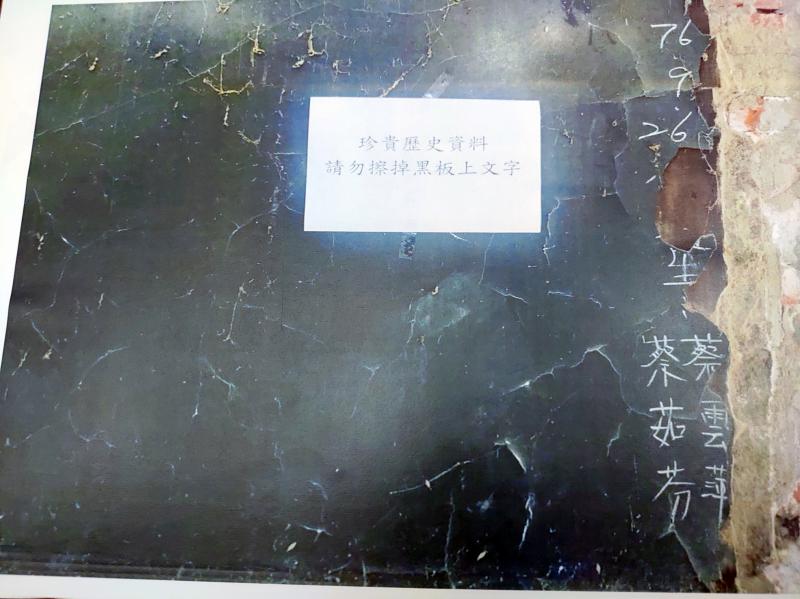 珍貴歷史資料
請勿擦掉黑板上文字
76
9
26
生
蔡雲萍
蔡茹芬